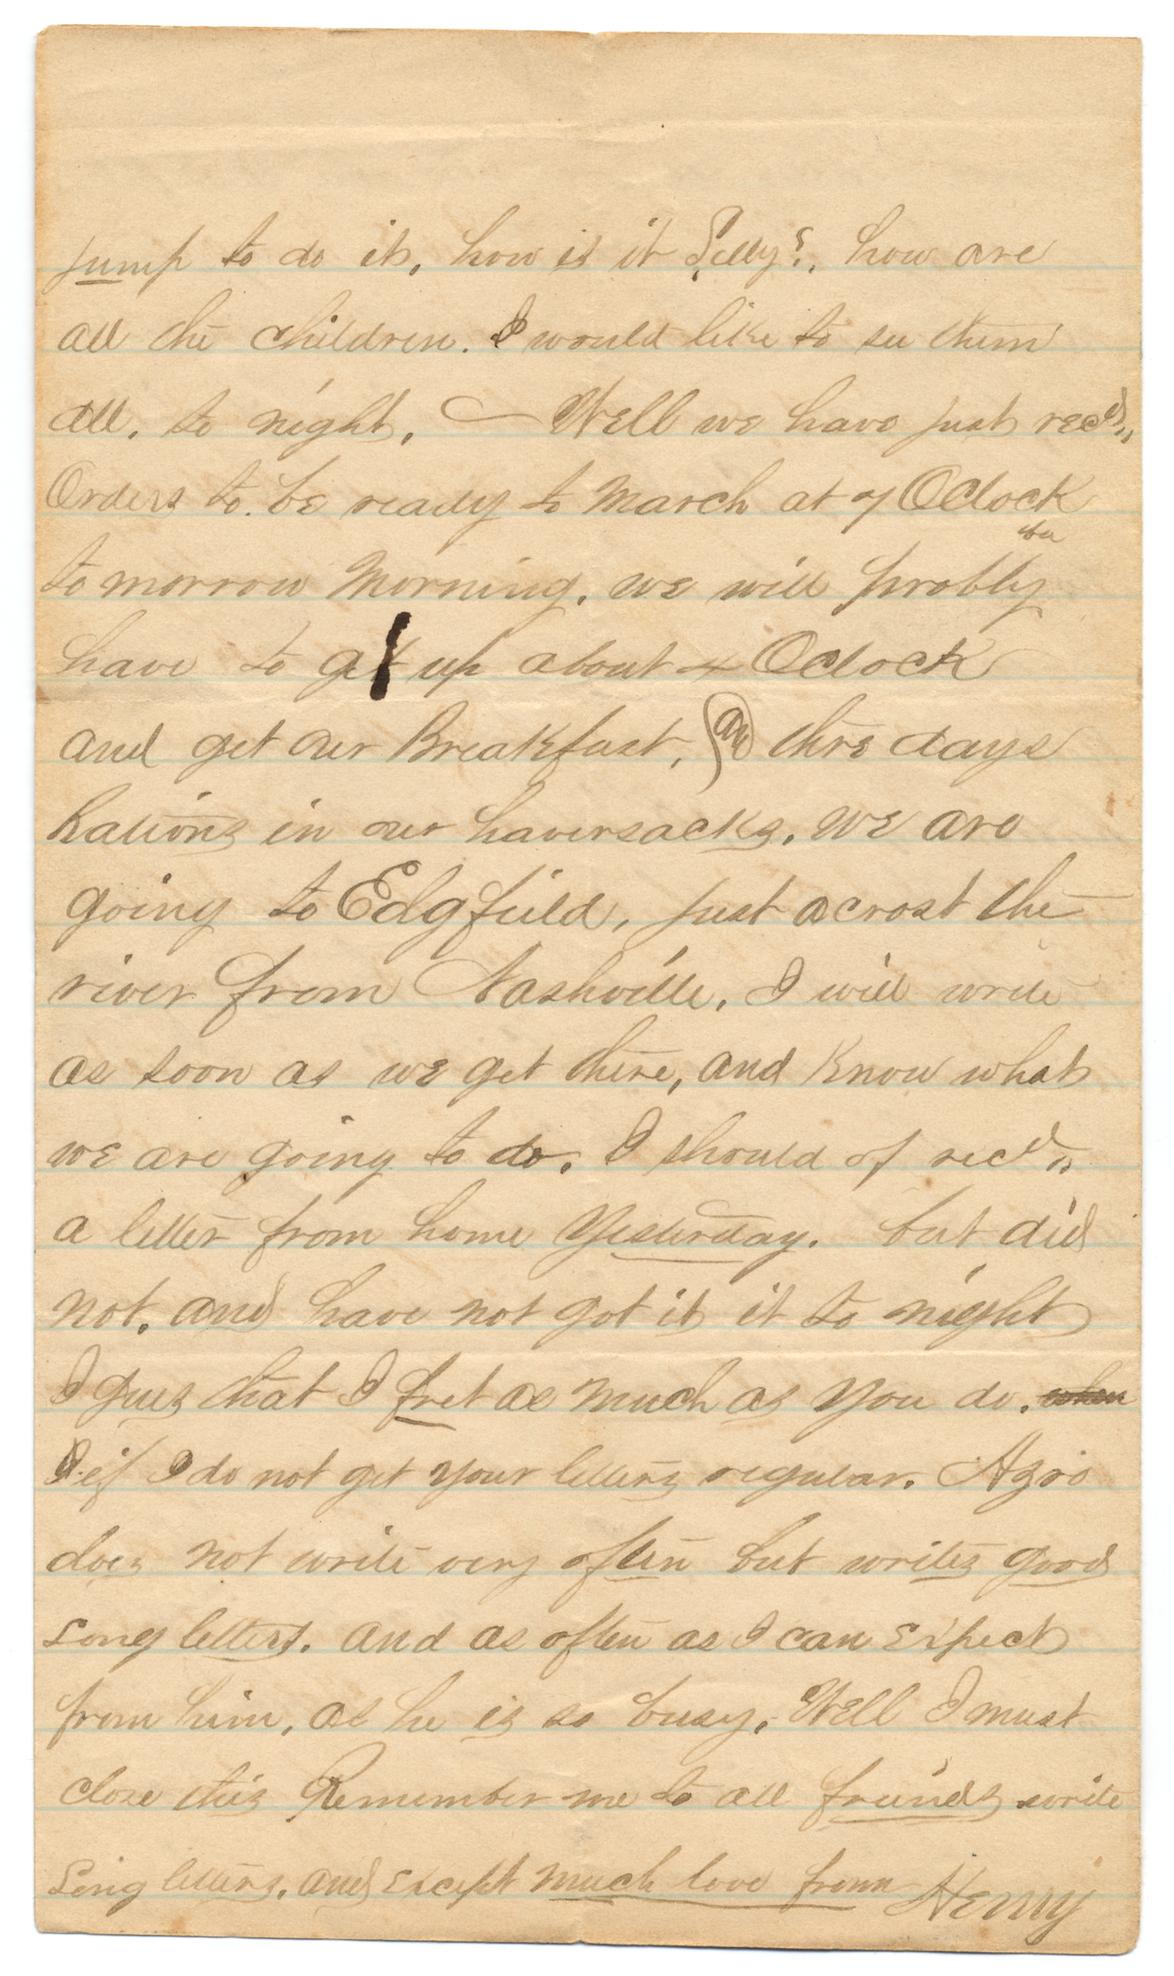 jump to do it, how is it Lilly?, how are
all the children. I would like to see them
all, to night, — Well we have just recd,,
Orders to be ready to March at 7 OClock
to morrow Morning. we will probly
have to get up about 4 OClock
and get our Breakfast, thre days
Rations in our haversacks. we are
going to Edgfield, just acrost the
river from Nashville, I will write
as soon as we get there, and Know what
we are going to do. I should of recd,,
a letter from home Yesterday. but did
not, and have not got it it to night
I gues that I fret as much as you do. when
I if I do not get your letters regular. Azro
does not write very often but writes good
Long letters. and as often as I can Expect
from him, as he is so busy. Well I must
close this Remember me to all friends write
Long letters, and Except much love from Henry